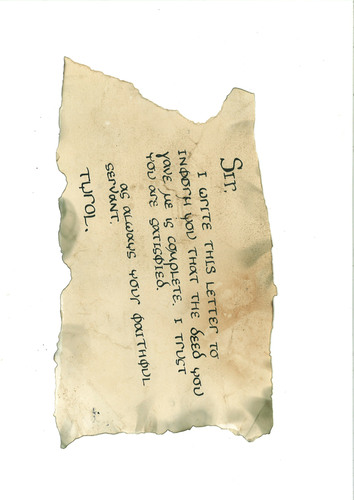 Sir,
I write this letter to
inform you that the deed you
gave me is complete. I trust
you are satisfied.
as always your faithful
servant.
Tyrol.